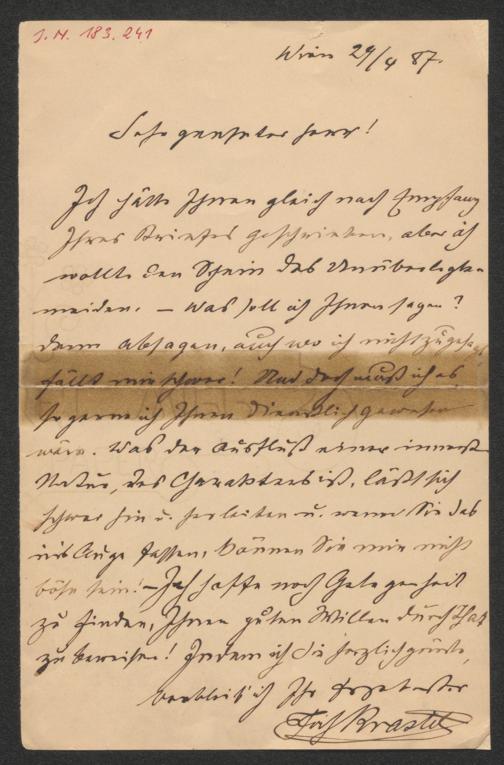 J. N. 183.241
Wien 29/4 87.
Sehr geehrter Herr!
Ich hätte Ihnen gleich nach Empfang
Ihres Briefes geschrieben, aber ich
wollte den Schein des Unüberlegten
meiden. – Was soll ich Ihnen sagen?
denn absagen, auch wo ich nicht zugesagt
fällt mir schwer! Und doch muß ich es
so gerne ich Ihnen dienstlich gewesen
wäre. Was der Ausfluß einer innersten
Natur, des Charakters ist, läßt sich
schwer hin u. herleiten u. wenn Sie das
ins Auge fassen, können Sie mir nicht
böse sein! – Ich hoffe noch Gelegenheit
zu finden, Ihnen guten Willen durch That
zu beweisen! Indem ich Sie herzlich grüße,
verbleib' ich Ihr ergebenster
Krastel